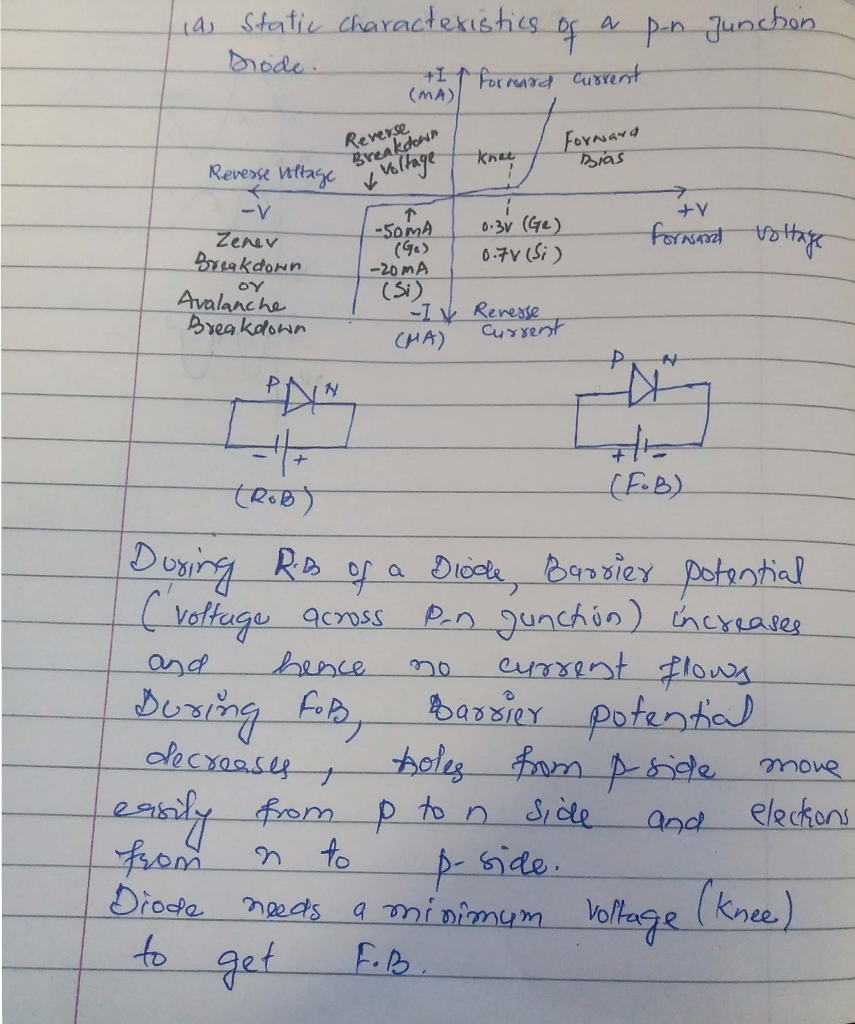 (a) Static characteristics of a p-n junction
Diode.
+I
(mA)
forward current
Reverse
Breakdown
Voltage
Knee
Forward
Bias
Reverse Voltage
-V
+V
Forward Voltage
Zener
Breakdown
or
Avalanche
Breakdown
-50mA
(Ge)
-20mA
(Si)
0.3V (Ge)
0.7V (Si)
-I
(μA)
Reverse
Current
P N
- +
(R.B)
P N
+ -
(F.B)
During R.B of a Diode, Barrier potential
(voltage across P-n junction) increases
and hence no current flows
During F.B, Barrier potential
decreases, holes from p-side move
easily from p to n side and elections
from n to p-side.
Diode needs a minimum voltage (Knee)
to get F.B.